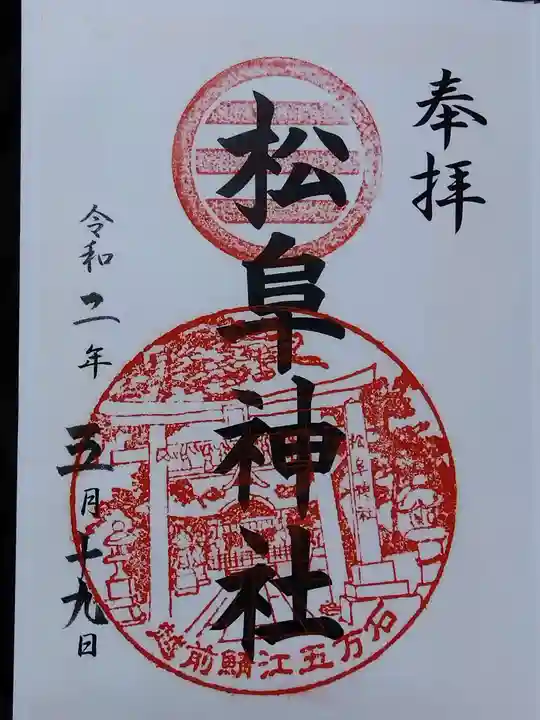 奉拝
松阜神社
令和二年
五月十九日
松阜神社
越前鯖江五万石